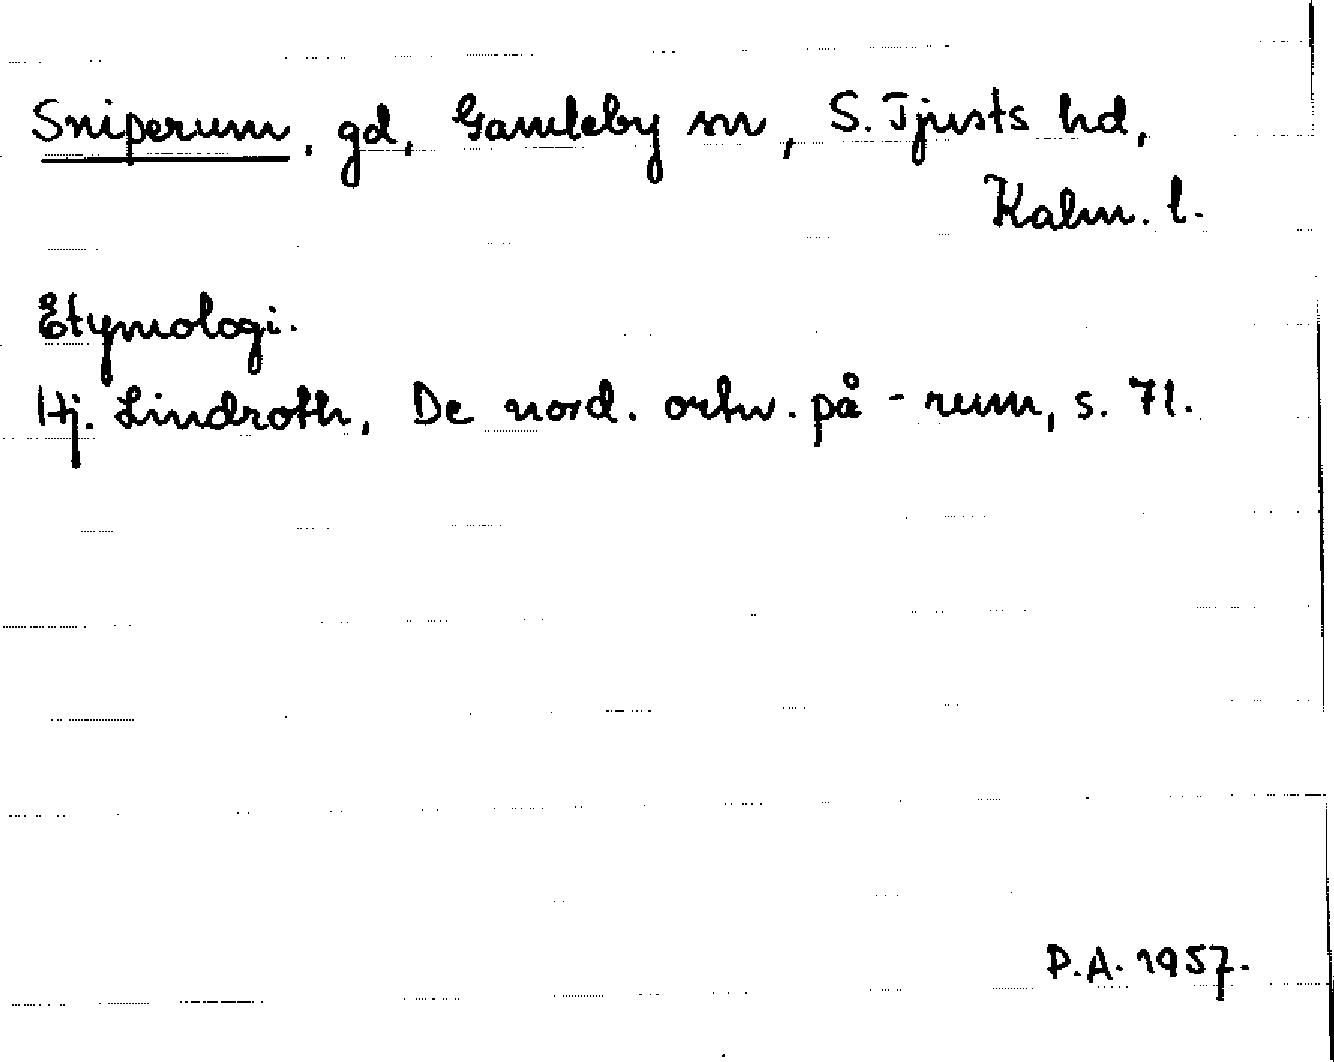 Sniperum, gd, Gamleby sn, S. Tjusts hd,
Kalm. l.
Etymologi.
Hj. Lindroth, De nord. ortn. på -rum, s. 71.
P.A. 1957.